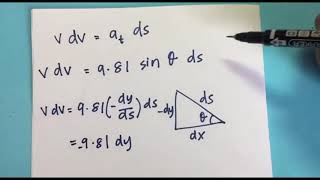 v dv = aₜ ds
v dv = 9.81 sin θ ds
v dv = 9.81 (-dy/ds) ds
= -9.81 dy
-dy
ds
θ
dx